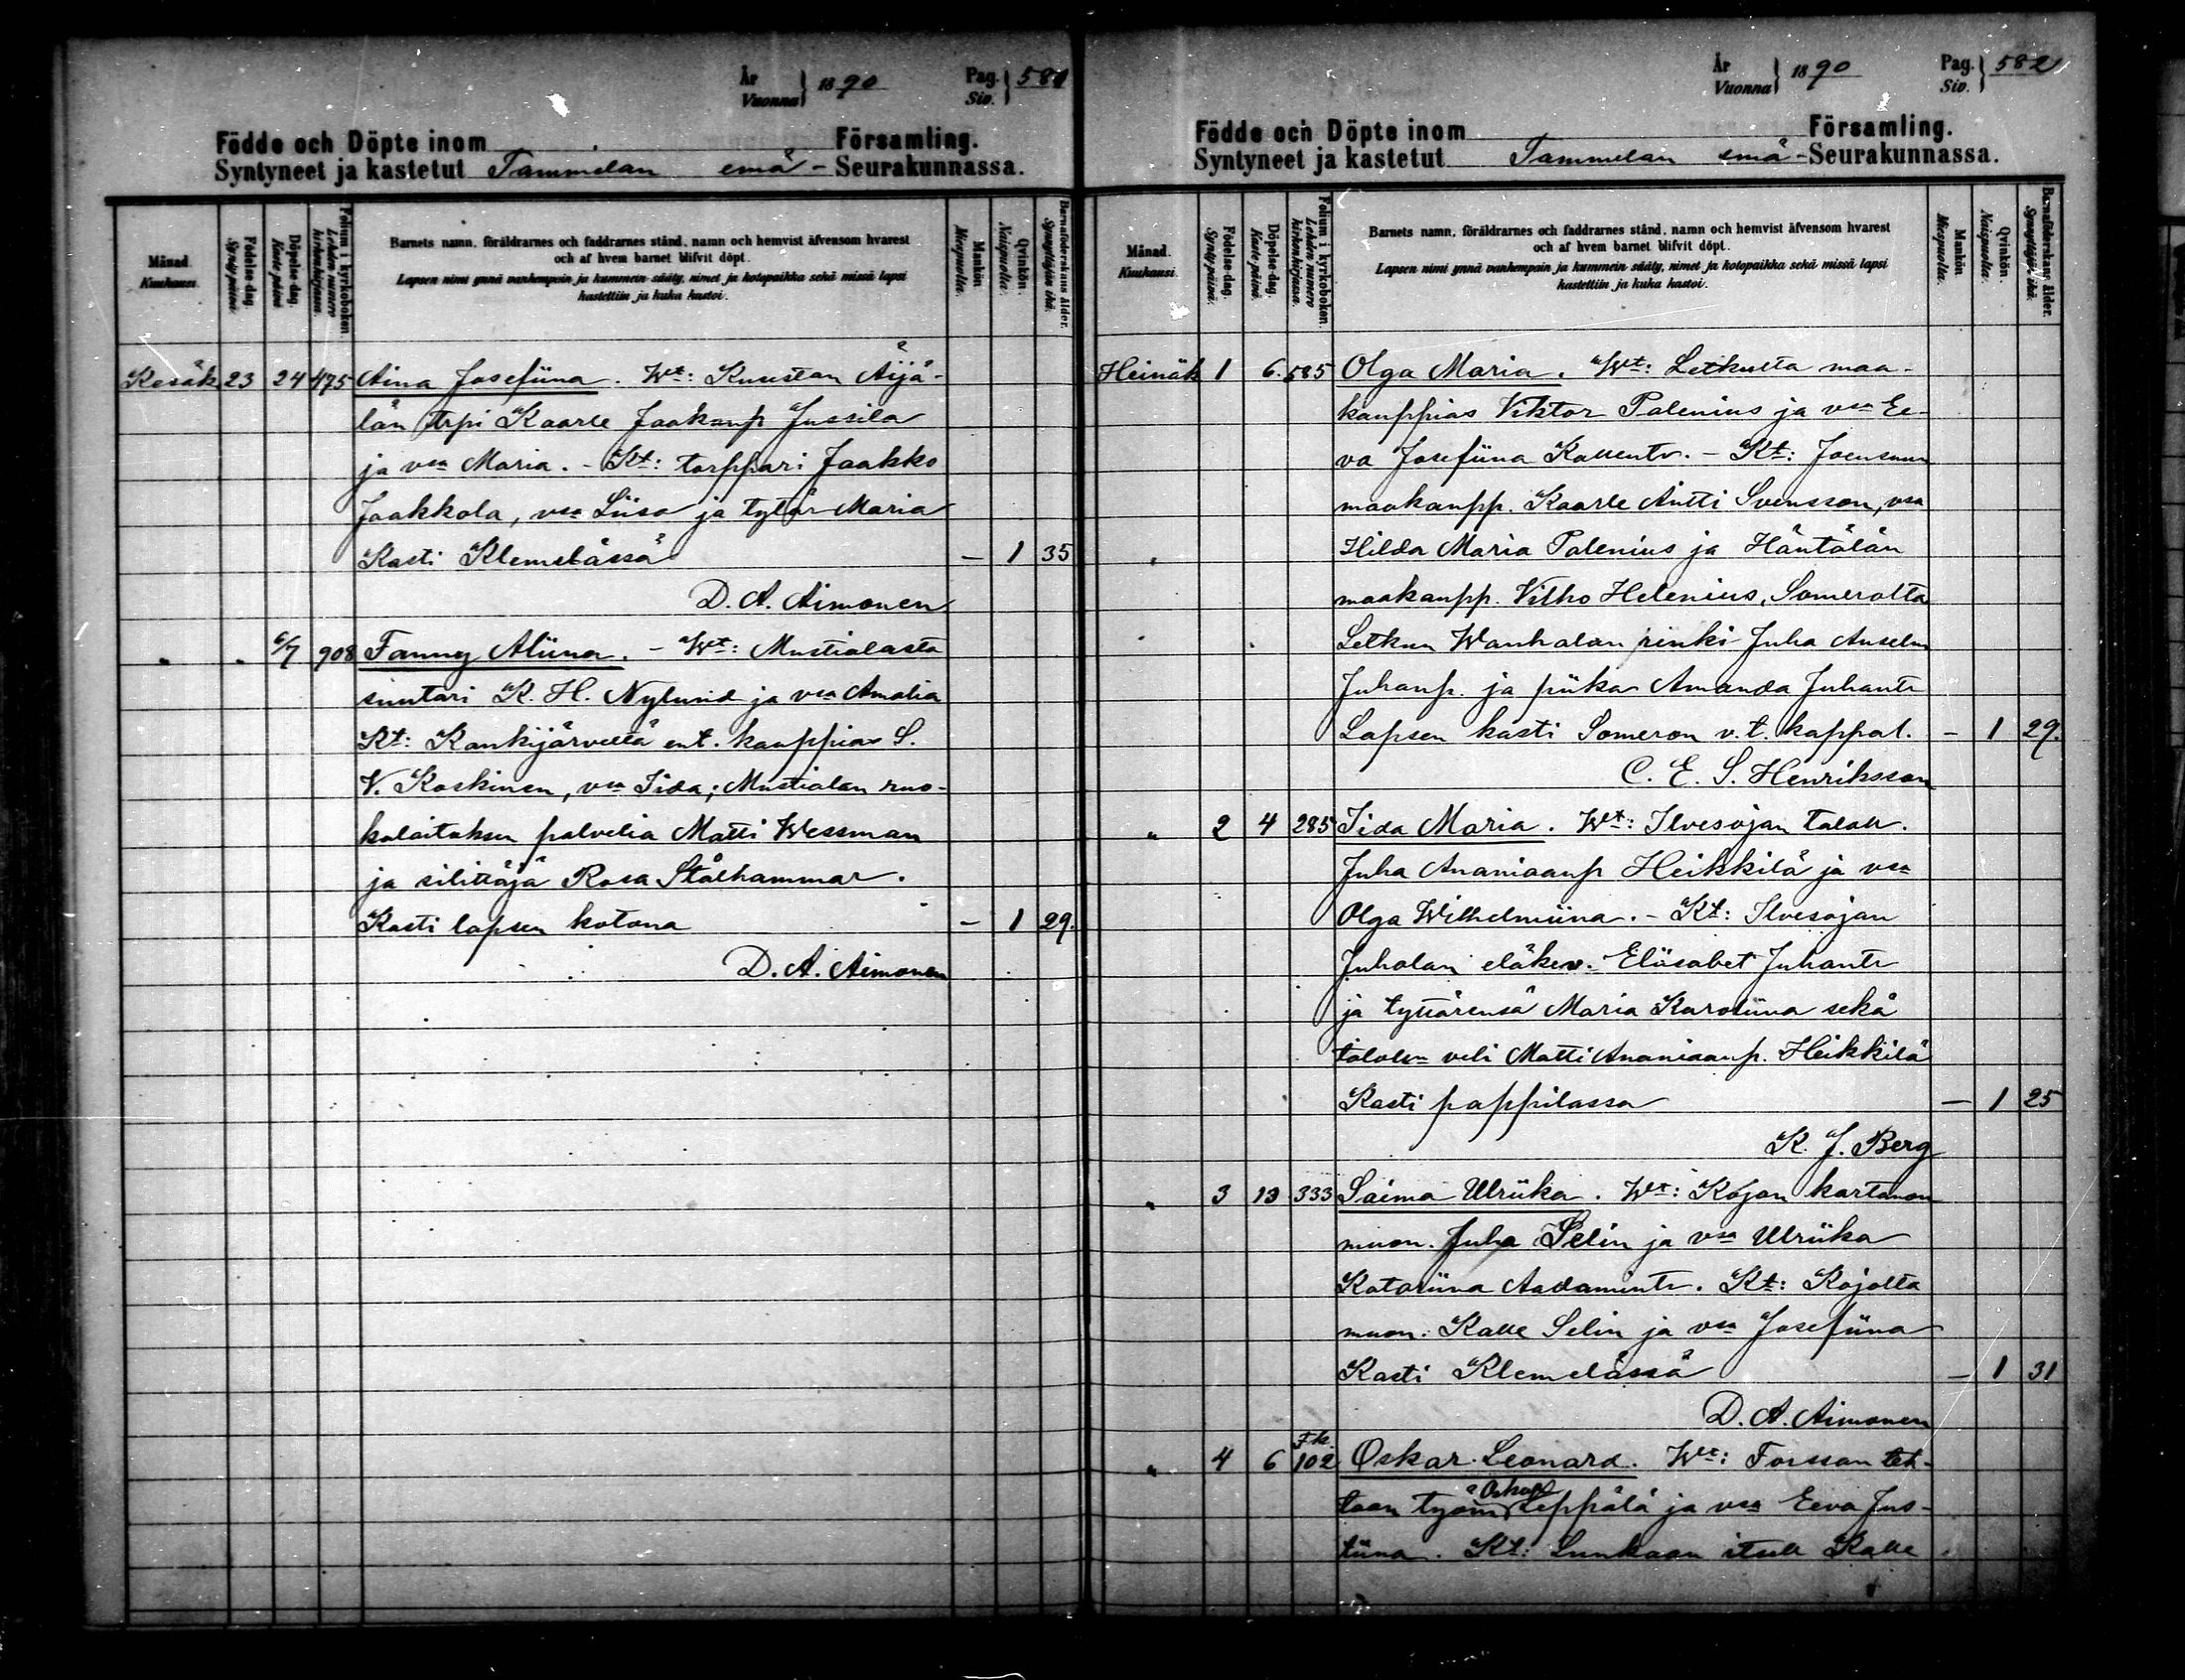 År
Vuonna } 1890
Pag.
Siv. } 581
Födde och Döpte inom Församling.
Syntyneet ja kastetut Tammelan emä-Seurakunnassa.
Månad.
Kuukausi.
Födelse-dag.
Synty-päivä.
Döpelse-dag.
Kaste-päivä.
Folium i kyrkoboken.
Lehden numero kirkonkirjassa.
Barnets namn, föräldrarnes och faddrarnes stånd, namn och hemvist äfvensom hvarest
och af hvem barnet blifvit döpt.
Lapsen nimi ynnä vanhempain ja kummein sääty, nimet ja kotopaikka sekä missä lapsi
kastettiin ja kuka kastoi.
Mankön.
Miespuolia.
Qvinkön.
Naispuolia.
Barnaföderskans ålder.
Synnyttäjän ikä.
Kesäk 23 24 475 Aina Josefiina. Wt: Kuustan Äijä-
län trpi Kaarle Jaakonp Jussila
ja vsa Maria. - Kt: torppari Jaakko
Jaakkola, vsa Liisa ja tytär Maria
Kasti Klemelässä - 1 35
D. A. Aimonen
" " 6/7 908 Fanny Aliina. - Wt: Mustialasta
suutari K. H. Nylund ja vsa Amalia
Kt: Kankijärveltä ent. kauppias S.
V. Koskinen, vsa Iida; Mustialan ruo-
kalaitoksen palvelia Matti Wessman
ja silittäjä Rosa Stålhammar.
Kasti lapsen kotona - 1 29.
D. A. Aimonen
År
Vuonna } 1890
Pag.
Siv. } 582
Födde och Döpte inom Församling.
Syntyneet ja kastetut Tammelan emä-Seurakunnassa.
Månad.
Kuukausi.
Födelse-dag.
Synty-päivä.
Döpelse-dag.
Kaste-päivä.
Folium i kyrkoboken.
Lehden numero kirkonkirjassa.
Barnets namn, föräldrarnes och faddrarnes stånd, namn och hemvist äfvensom hvarest
och af hvem barnet blifvit döpt.
Lapsen nimi ynnä vanhempain ja kummein sääty, nimet ja kotopaikka sekä missä lapsi
kastettiin ja kuka kastoi.
Mankön.
Miespuolia.
Qvinkön.
Naispuolia.
Barnaföderskans ålder.
Synnyttäjän ikä.
Heinäk 1 6. 585 Olga Maria. Wt: Letkulta maa-
kauppias Viktor Palenius ja vsa Ee-
va Josefiina Kallentr. - Kt: Joensuun
maakaupp. Kaarle Antti Svensson, vsa
Hilda Maria Palenius ja Häntälän
maakaupp. Vilho Helenius, Somerolta
Letkun Wanhalan renki Juha Anselm
Juhanp. ja piika Amanda Juhantr
Lapsen kasti Someron v. t. kappal. - 1 29.
C. E. S. Henriksson
" 2 4 285 Iida Maria. Wt: Ilvesojan taloll.
Juha Ananiaanp Heikkilä ja vsa
Olga Wilhelmiina. - Kt: Ilvesojan
Juholan eläkev. Eliisabet Juhantr
ja tyttärensä Maria Karoliina sekä
talolln veli Matti Ananiaanp. Heikkilä
Kasti pappilassa - 1 25
K. J. Berg
" 3 13 333 Saima Ulriika. Wt: Kojon kartanon
muon. Juha Selin ja vsa Ulriika
Katariina Aadamintr. Kt: Kojolta
muon. Kalle Selin ja vsa Josefiina
Kasti Klemelässä - 1 31
D. A. Aimonen
" 4 6 Fk. 102 Oskar Leonard. Wt: Forssan teh-
taan työm Oskar Leppälä ja vsa Eeva Jus-
tiina. Kt: Lunkaan itsell Kalle